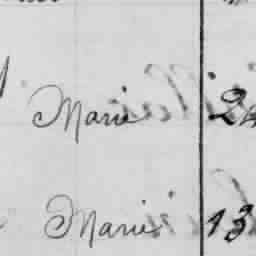 Marie 24
Marie 13